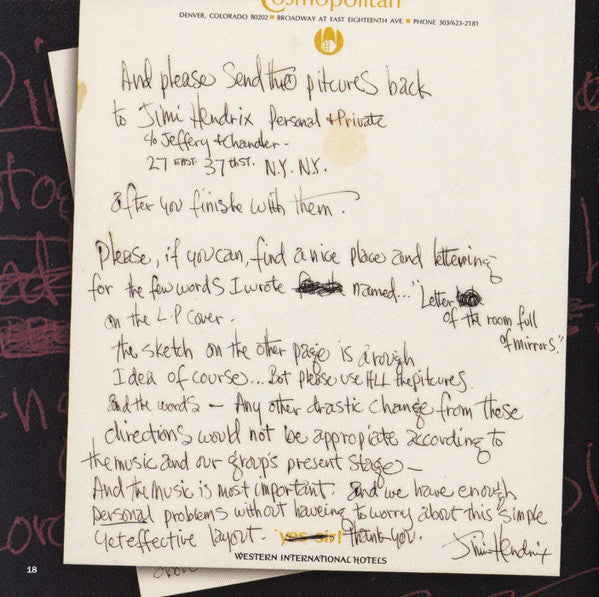 Cosmopolitan
DENVER, COLORADO 80202 ▪ BROADWAY AT EAST EIGHTEENTH AVE. ▪ PHONE 303/623-2181
And please send the pitcures back
to Jimi Hendrix Personal + Private
c/o Jeffery + Chandler -
27 EAST 37th ST. N.Y. N.Y.
after you finishe with them.
Please, if you can, find a nice place and lettering
for the few words I wrote named... "Letter
of the room full
of mirrors."
on the L-P cover.
the sketch on the other page is a rough
Idea of course... But please use ALL the pitcures
and the words - Any other drastic change from these
directions would not be appropiate according to
the music and our group's present stage -
And the music is most important. and we have enough
personal problems without haveing to worry about this simple
yet effective layout. yes sir! thank you.
Jimi Hendrix
WESTERN INTERNATIONAL HOTELS
18